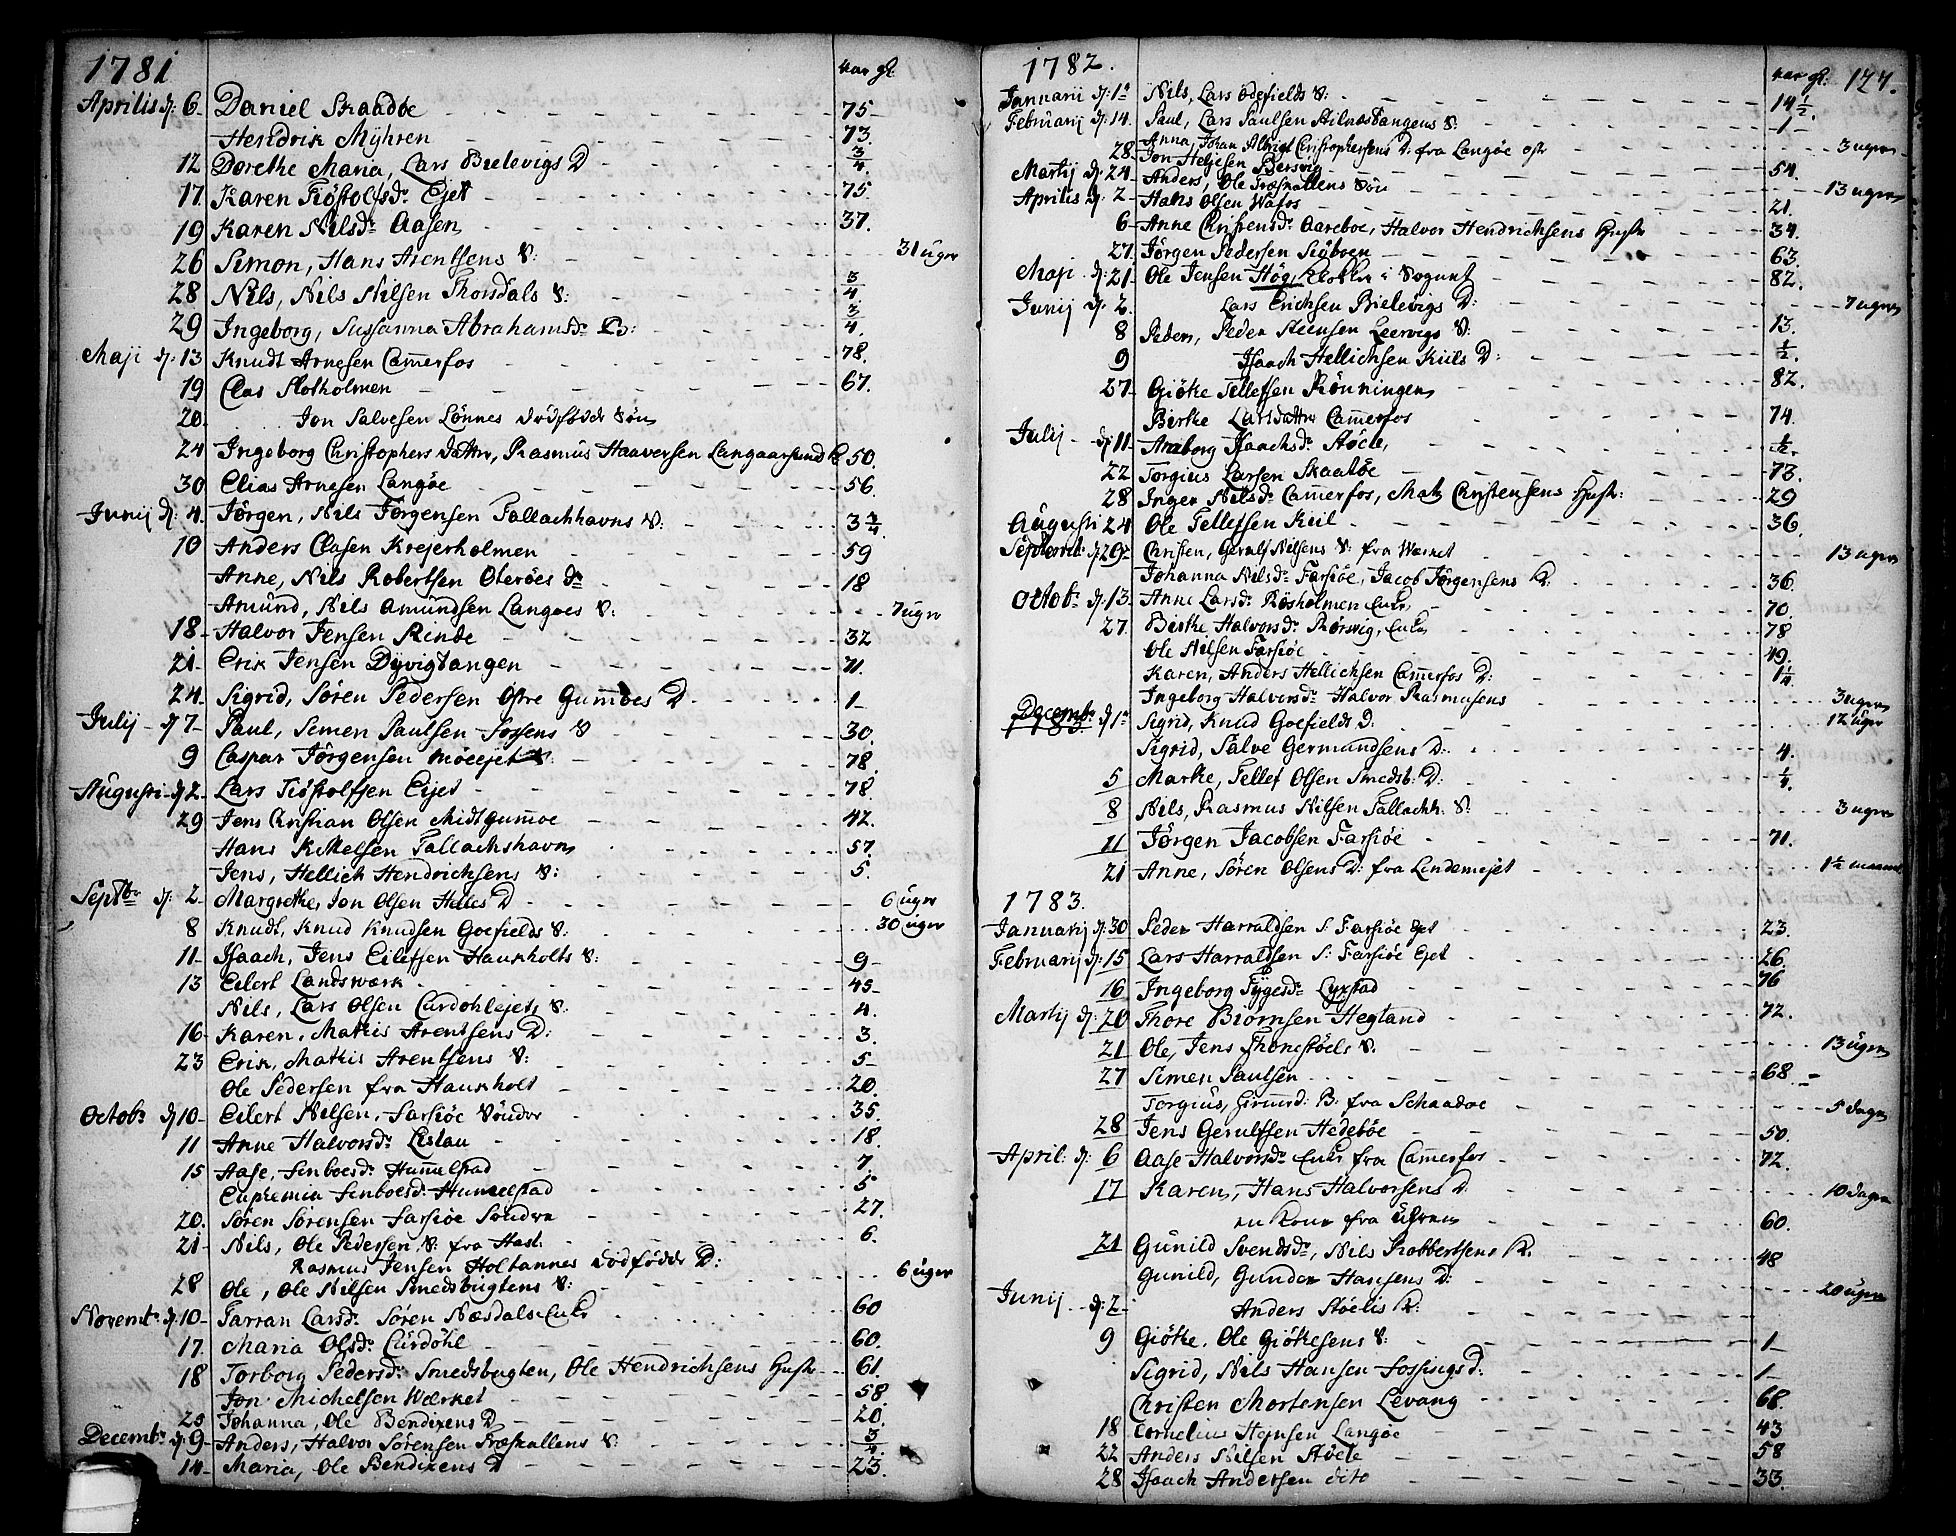 1781 var gl.
Aprilis d: 6 Daniel Skaadøe 75
Hendrik Myhren 73.
12 Dorethe Maria, Lars Buelevigs D 3/4.
17 Karen Tiøstolfsd: Ejet 75.
19 Karen Nilsd: Aasen 37.
26 Simon, Hans Arentsens S: 31 uger
28 Nils, Nils Nilsen Thorsdals S: 3/4.
29 Ingeborg, Sussanna Abrahamsd: B: 3/4.
Maji d: 13 Knudt Arnesen Camerfos 78.
19 Clas Slotholmen 67.
20. Jon Salvesen Lønnes dødfødde Søn
24 Ingeborg Christophersdatter, Rasmus Haaversen Langaarsund K 50.
30 Elias Arnesen Langøe 56.
Junij d: 4. Jørgen, Nils Jørgensen Tallachhavns S: 3 1/4
10 Anders Clasen Krejerholmen 59
Anne, Nils Robertsen Oterøes dr 18
Amund, Nils Amundsen Langøes S: 7 uger
18 Halvor Jensen Rinde 32
21 Erik Jensen Dyvigtangen 71.
24. Sigrid, Søren Pedersen Østre Gumøes D 1
Julij d 7 Paul, Semen Paulsen Fossens S 30.
9 Caspar Jørgensen Møeejet 78.
Augusti d 2 Lars Tiøstolfsen Eijet 78.
29 Jens Christian Olsen Midtgumøe 42.
Hans Kittelsen Tallachshavn 57.
Jens, Hellich Hendrichsens S: 5.
Septbr d: 2 Margrethe, Jon Olsen Hulles D 6 uger
8 Knudt, Knud Knudsen Goefields S: 30 uger
11 Isaach, Jens Eilefsen Haukholts S: 9
13 Eilert Landsværk 45
Nils, Lars Olsen Curdøhlejets S: 4.
16 Karen, Mathis Arentsens D: 3.
23 Erik, Mathis Arentsens S: 5
Ole Pedersen fra Haukholt 20.
Octobr d 10 Eilert Nilsen, Farsiøe Søndre 35.
11 Anne Halvorsd: Lislau 18.
15 Aase, Finboesd: Humelstad 7.
Euphemia Finboesd: Humelstad 5
20. Søren Sørensen Farsiøe Søndre 27.
21 Nils, Ole Pedersen S: fra Hast. 6.
Rasmus Jensen Holtannes dødfødde D:
28 Ole, Ole Nilsen Smedsbugtens S: 6 uger
Novembr d: 10 Tarran Larsd: Søren Næsdals Enke 60
17. Maria Olsd: Curdøhl 60.
18 Torborg Pedersd: Smedsbugten, Ole Hendrichsens Hustr 61.
Jon Michelsen Wærket 58.
25 Johanna, Ole Bendixens D 20.
Decembr d 9 Anders, Halvor Sørensen Træskallens S: 3/4.
14 Maria, Ole Bendixens D 23.
1782. var gl. 177.
Januarii d: 1 Nils, Lars Ødefields S: 14 1/2.
Februarij d: 14. Paul, Lars Paulsen Stilnestangens S: 1
28. Anna, Johan Albrigt Christophersens D: fra Langøe østr 3 uger
Martij d: 24 Jon Helgesen Bersvig 54.
Anders, Ole Træskallens Søn 13 uger
Aprilis d: 2 Hans Olsen Wafos 21.
6 Anne Christensd: Aarøboe, Halvor Hendrichsens Hustr 34.
27. Jørgen Pedersen Siøboen 63.
Maji d: 21 Ole Jensen Høg, Klokker i Sognet 82.
Junij d: 2. Lars Erichsen Bielevigs D: 7 uger
8 Peder, Peder Steensen Leervigs S: 13.
9 Isaach Hellichsen Kiils D: 1/2.
27 Giøthe Tellefsen Rønningen 82.
Birthe Larsdatter Camerfos 74.
Julij d 11 Anborg Isaachsd: Støele, 1/2.
22 Torgius Larsen Skaatøe 73.
28 Inger Nilsd: Camerfos, Matz Christensens Hustr: 29
Augusti 24 Ole Tellefsen Kiil 36.
Septembr d 29 Christen, Gerulf Nilsens S: fra Wærket 13 uger
Johanna Nilsd: Farsiøe, Jacob Jørgensens K: 36.
Octobr d: 13 Anne Larsd: Røsholmen Enke 70.
27 Birthe Halvorsd: Rørsvig, Enke 78
Ole Nilsen Farsiøe 49.
Karen, Anders Hellichsen Camerfos D: 1 1/4
Ingeborg Halversd: Halvor Rasmusens 3 uger
Decembr d 1 Sigrid, Knud Goefields D: 12 uger
1783.
Sigrid, Salve Germundsens D: 4.
5 Marthe, Tellef Olsen Smedsb: D: 1/4.
8 Nils, Rasmus Nilsen Tallachh: S: 3 uger
11 Jørgen Jacobsen Farsiøe 71.
21 Anne, Søren Olsens D: fra Lindemejet 1 1/2 maaned
1783.
Januarij d: 30 Peder Harraldsen S: Farsiøe Ejet 23.
Februarij d: 15 Lars Harraldsen S: Farsiøe Ejet 26.
16 Ingeborg Tygesd: Lyxstad 76
Martij d: 20 Thore Biørnsen Hegland 72.
21 Ole, Jens Thonstøels S. 13 uger
27 Semen Paulsen 68.
Torgius, Girund: B: fra Schaadøe 5 dage
28 Jens Gerulfsen Hedebøe 50.
April: d: 6 Aase Halvorsd: Enke fra Camerfos 72.
17 Karen, Hans Halvorsens D. 10 dage
en Kone fra 60.
21 Gunild Svendsd:, Nils Robbertsens K. 48
Gunild, Gunder Hansens D: 20 uger
Junij d: 2 Anders Støelis K:
9 Giøthe, Ole Giøthesens S: 1
Sigrid, Nils Hansen Fossings D: 1
Christen Mortensen Levang 68.
18 Cornelius Hansen Langøe 43
22 Anders Nilsen Støele 58
28 Isaach Andersen dito 33.